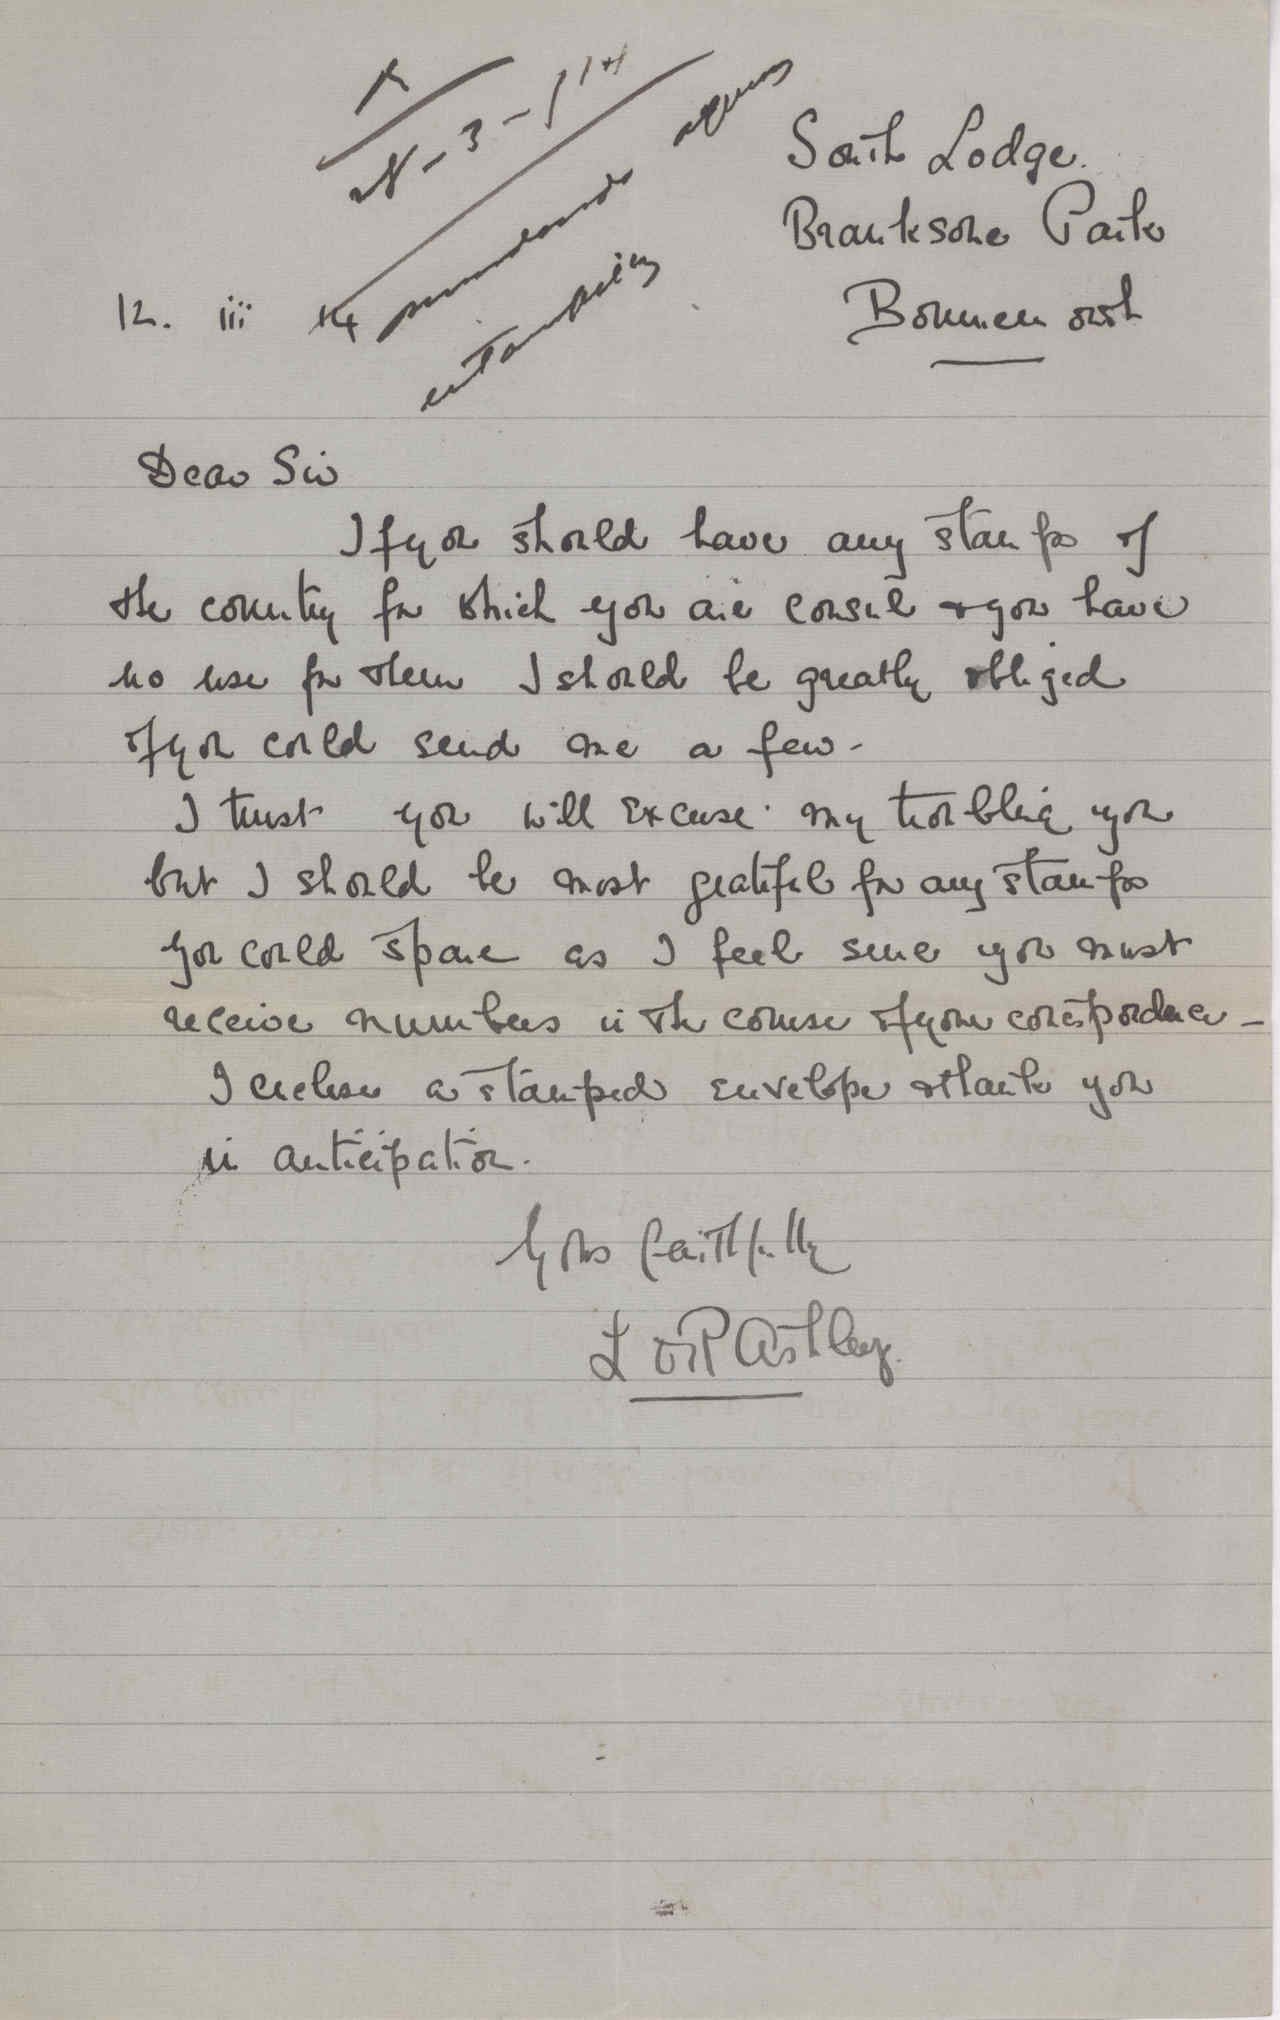 South Lodge.
Branksome Park
Bournemouth
12. iii 14
Dear Sir
If you should have any stamps of
the country for which you are consul & you have
no use for them I should be greatly obliged
if you could send me a few -
I trust you will excuse my troubling you
but I should be most grateful for any stamps
you could spare as I feel sure you must
receive numbers in the course of your correspondence -
I enclose a stamped envelope & thank you
in anticipation.
Yours faithfully
Ashley.
estampillas